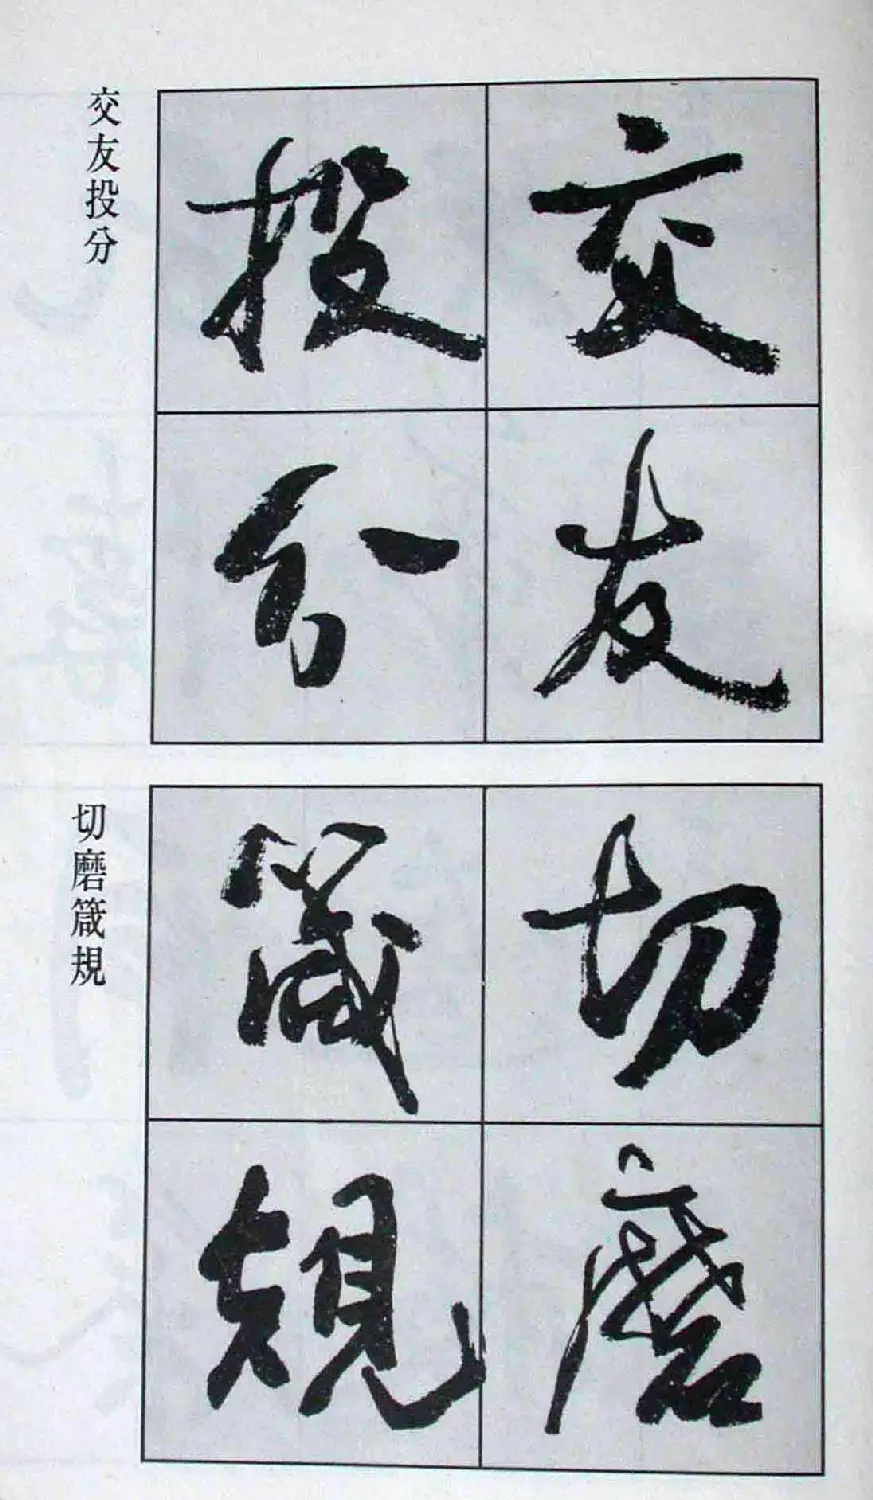 交友
投分
交友投分
切磨
箴規
切磨箴規